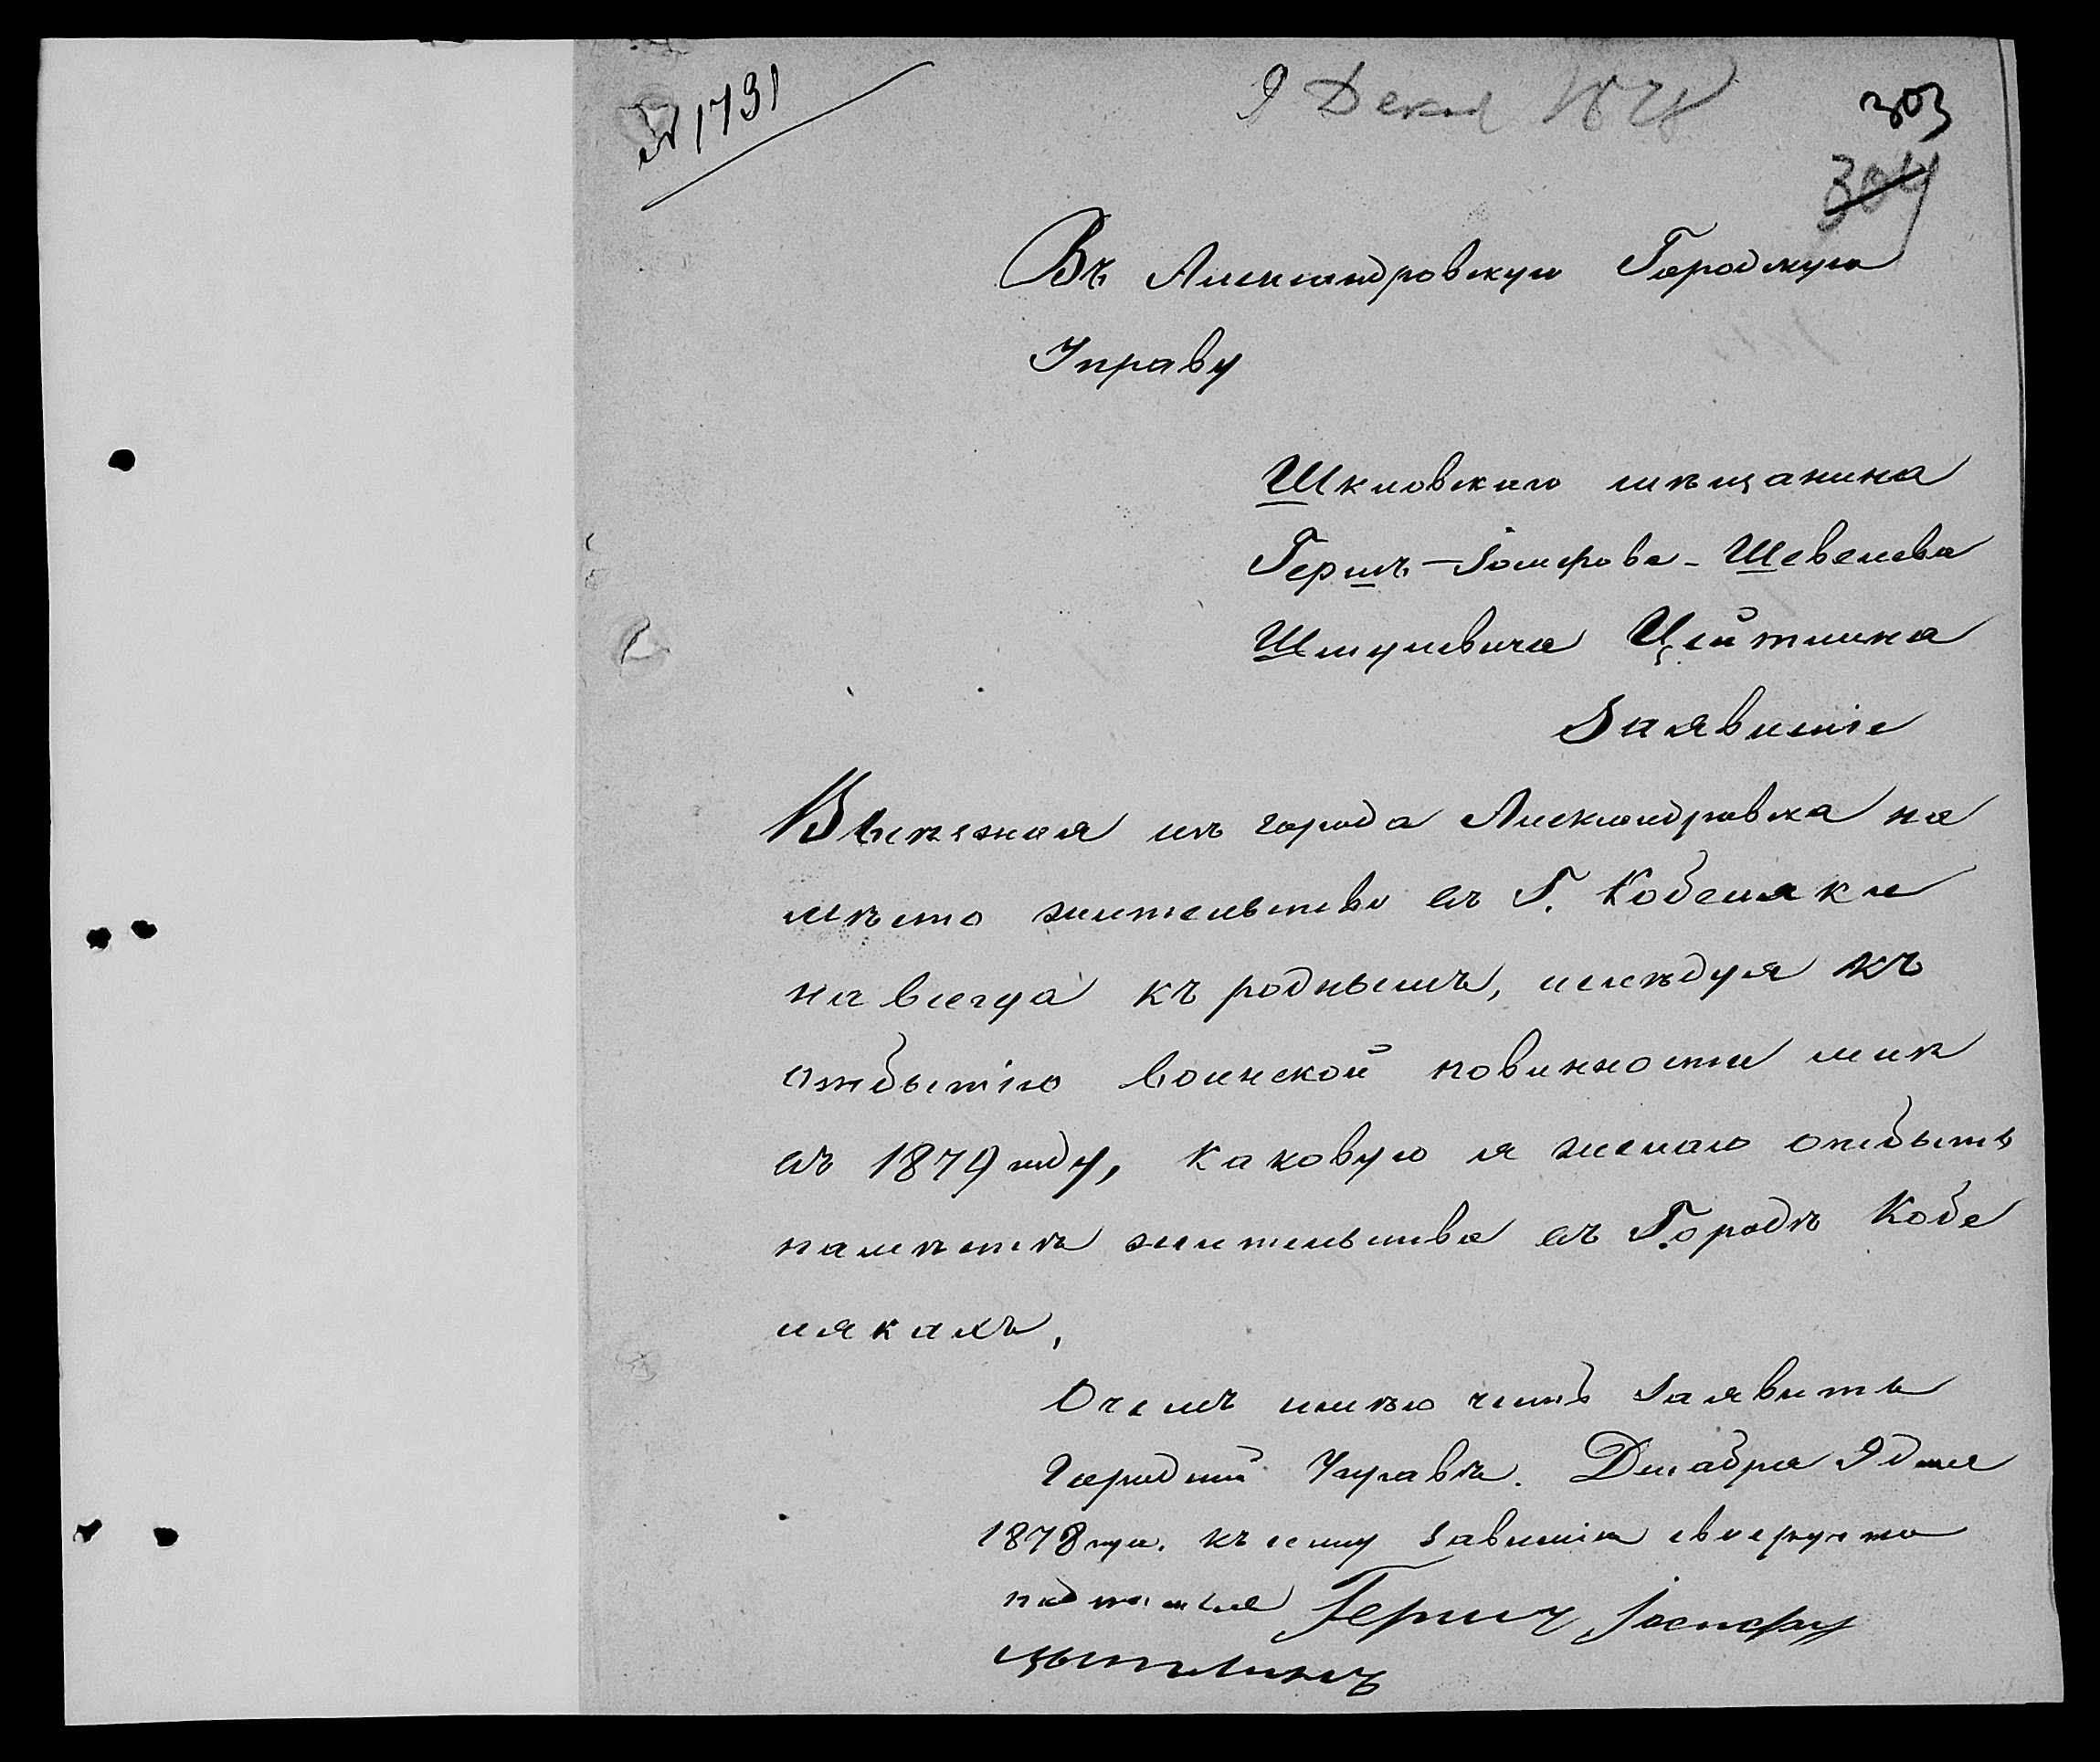 № 1731
9 Декаб 1878
303
304
Въ Александровскую Городскую
Управу
Шкловскаго мѣщанина
Гершъ-Іосифова-Шевелева
Шмулевича Цейтлина
Заявленіе
Выѣзжая изъ города Александровска на
мѣсто жительства въ Г. Кобеляки
на всегда къ роднымъ, слѣдуя къ
отбытію воинской повинности мнѣ
въ 1879 году, каковую я желаю отбыть
на мѣстѣ жительства въ Городѣ Кобе
лякахъ,
О чемъ имѣю честь заявить
Городской Управѣ. Декабря 9 дня
1878 года. къ сему заявленію своеручно
подписался Гершъ Іосифъ
Цытлинъ